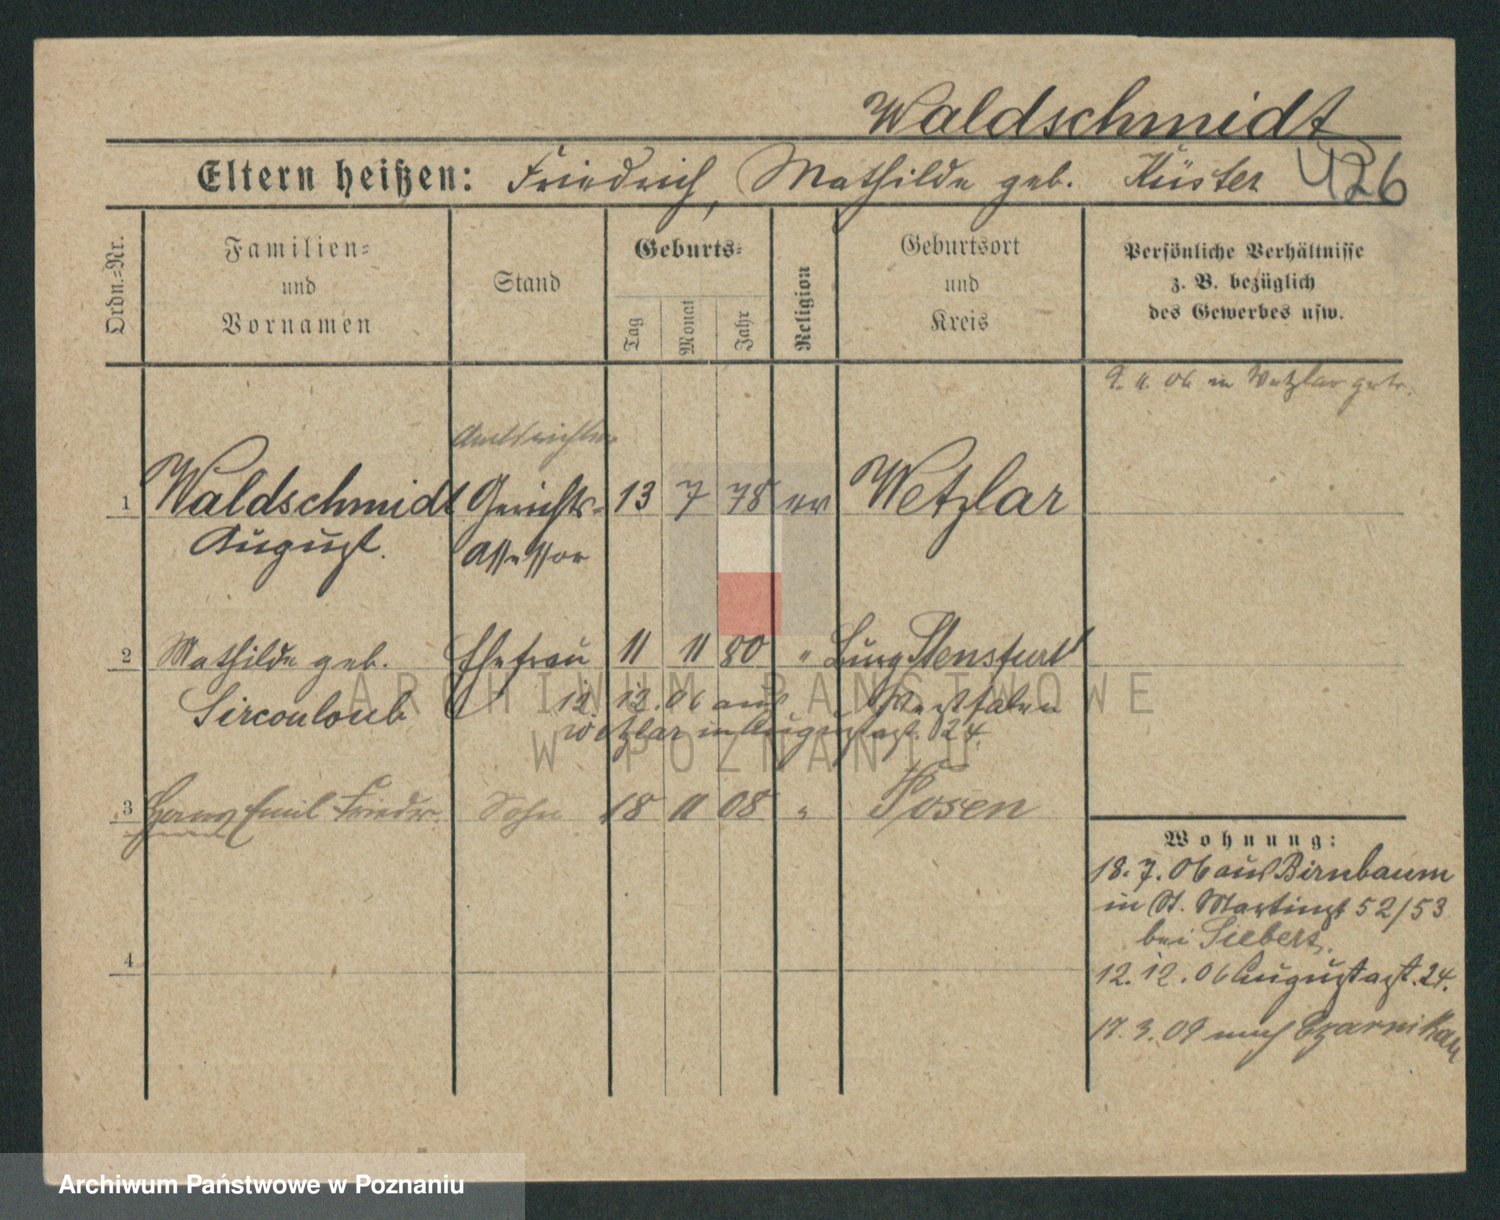 Waldschmidt
Eltern heißen: Friedrich, Mathilde geb. Küster 426
Ordn.=Nr.
Familien=
und
Vornamen
Stand
Geburts=
Tag
Monat
Jahr
Religion
Geburtsort
und
Kreis
Persönliche Verhältnisse
z. B. bezüglich
des Gewerbes usw.
9. 11. 06 in Wetzlar getr.
Amtsrichter
1 Waldschmidt Gerichts- 13 7 78 ev Wetzlar
August. Assessor
2 Mathilde geb. Ehefrau 11 11 80 " Burg Stensfurt
12. 12. 06 aus Westfalen
Wetzlar in Augustast. 24.
3 Hans Emil Friedr. Sohn 18 11 08 " Posen
4
Wohnung:
18. 7. 06 aus Birnbaum
in St. Martinst 52/53
bei Siebert.
12. 12. 06 Augustast. 24.
17. 3. 09 nach Czarnikau
ARCHIWUM PAŃSTWOWE
W POZNANIU
Archiwum Państwowe w Poznaniu